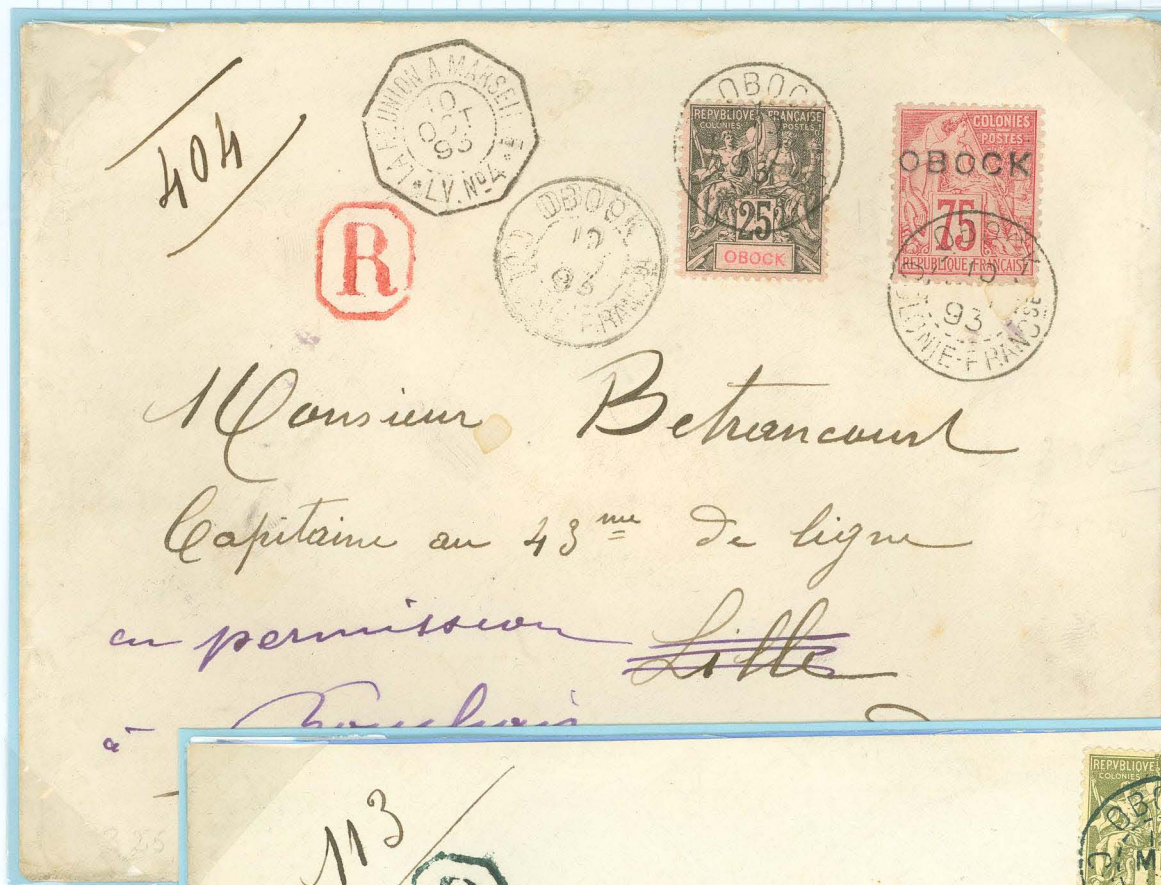 404
LA RÉUNION A MARSEILLE
10
OCT
93
L.V. Nº4
R
OBOCK
10
93
COLONIE FRANCSE
OBOCK
93
REPVBLIQVE FRANÇAISE
COLONIES POSTES
25
OBOCK
COLONIES
POSTES
OBOCK
75
REPUBLIQUE FRANÇAISE
OBOCK
10
93
COLONIE-FRANCSE
Monsieur Betrancourt
Capitaine au 43me de ligne
en permission Lille
à
113
REPVBLIQVE
COLONIES
OBO